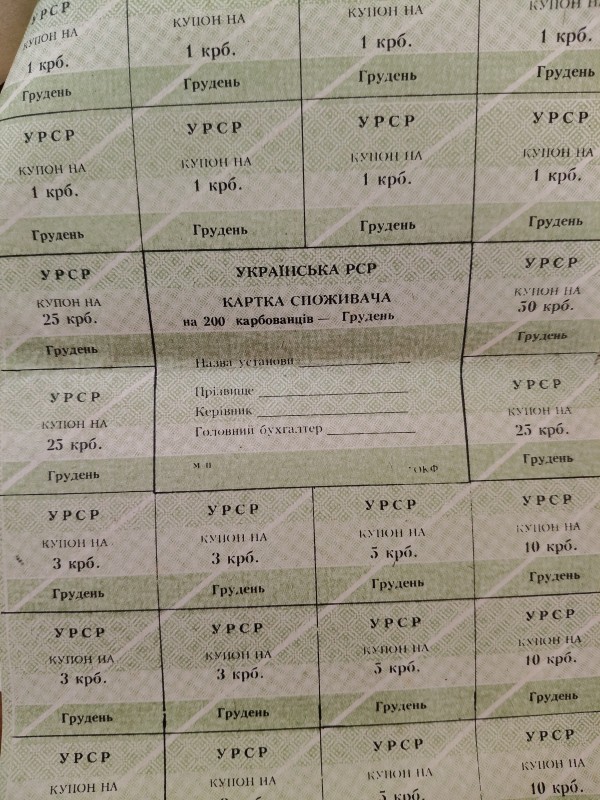 УРСР
КУПОН НА
1 крб.
Грудень
КУПОН НА
1 крб.
Грудень
КУПОН НА
1 крб.
Грудень
КУПОН НА
1 крб.
Грудень
УРСР
КУПОН НА
1 крб.
Грудень
УРСР
КУПОН НА
1 крб.
Грудень
УРСР
КУПОН НА
1 крб.
Грудень
УРСР
КУПОН НА
1 крб.
Грудень
УРСР
КУПОН НА
25 крб.
Грудень
УКРАЇНСЬКА РСР
КАРТКА СПОЖИВАЧА
на 200 карбованців — Грудень
Назва установи
Прізвище
Керівник
Головний бухгалтер
м п
УРСР
КУПОН НА
50 крб.
Грудень
УРСР
КУПОН НА
25 крб.
Грудень
УРСР
КУПОН НА
25 крб.
Грудень
УРСР
КУПОН НА
3 крб.
Грудень
УРСР
КУПОН НА
3 крб.
Грудень
УРСР
КУПОН НА
5 крб.
Грудень
УРСР
КУПОН НА
10 крб.
Грудень
УРСР
КУПОН НА
3 крб.
Грудень
УРСР
КУПОН НА
3 крб.
Грудень
УРСР
КУПОН НА
5 крб.
Грудень
УРСР
КУПОН НА
10 крб.
Грудень
УРСР
КУПОН НА
УРСР
КУПОН НА
УРСР
КУПОН НА
5 крб.
УРСР
КУПОН НА
10 крб.